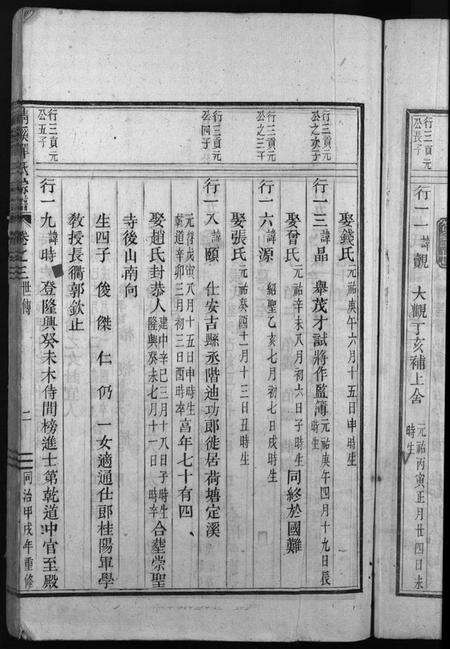 行三貢元
公長子
行一一 諱觀 大觀丁亥補上舍 元祐丙寅正月廿四日未
時生
娶錢氏 元祐庚午六月十五日申時生
行三貢元
公之次子
行一三 諱晶 舉茂才試將作監簿 元祐庚午四月十九日辰
時生
娶曾氏 元祐辛未八月初六日子時生 同終於國難
行三貢元
公之三子
行一六 諱源 紹聖乙亥七月初七日戌時生
娶張氏 元祐癸酉十二月十三日丑時生
行三貢元
公四子
行一八 諱頤 仕安吉縣丞階迪功郎徙居荷塘定溪
寅八月十五日申時生
乾道辛卯三月初三日酉時卒 高年七十有四
娶趙氏封恭人 建中辛巳三月十八日子時生
隆興癸未七月十一日時卒 合塟崇聖
寺後山南向
生四子 俊 傑 仁 仍 一女適通仕郎桂陽軍學
教授長衢郭欽止
行三貢元
公五子
行一九 諱時 登隆興癸未木待問榜進士第乾道中官至殿
氏宗譜 卷之三 世傳 二 同治甲戌年重修